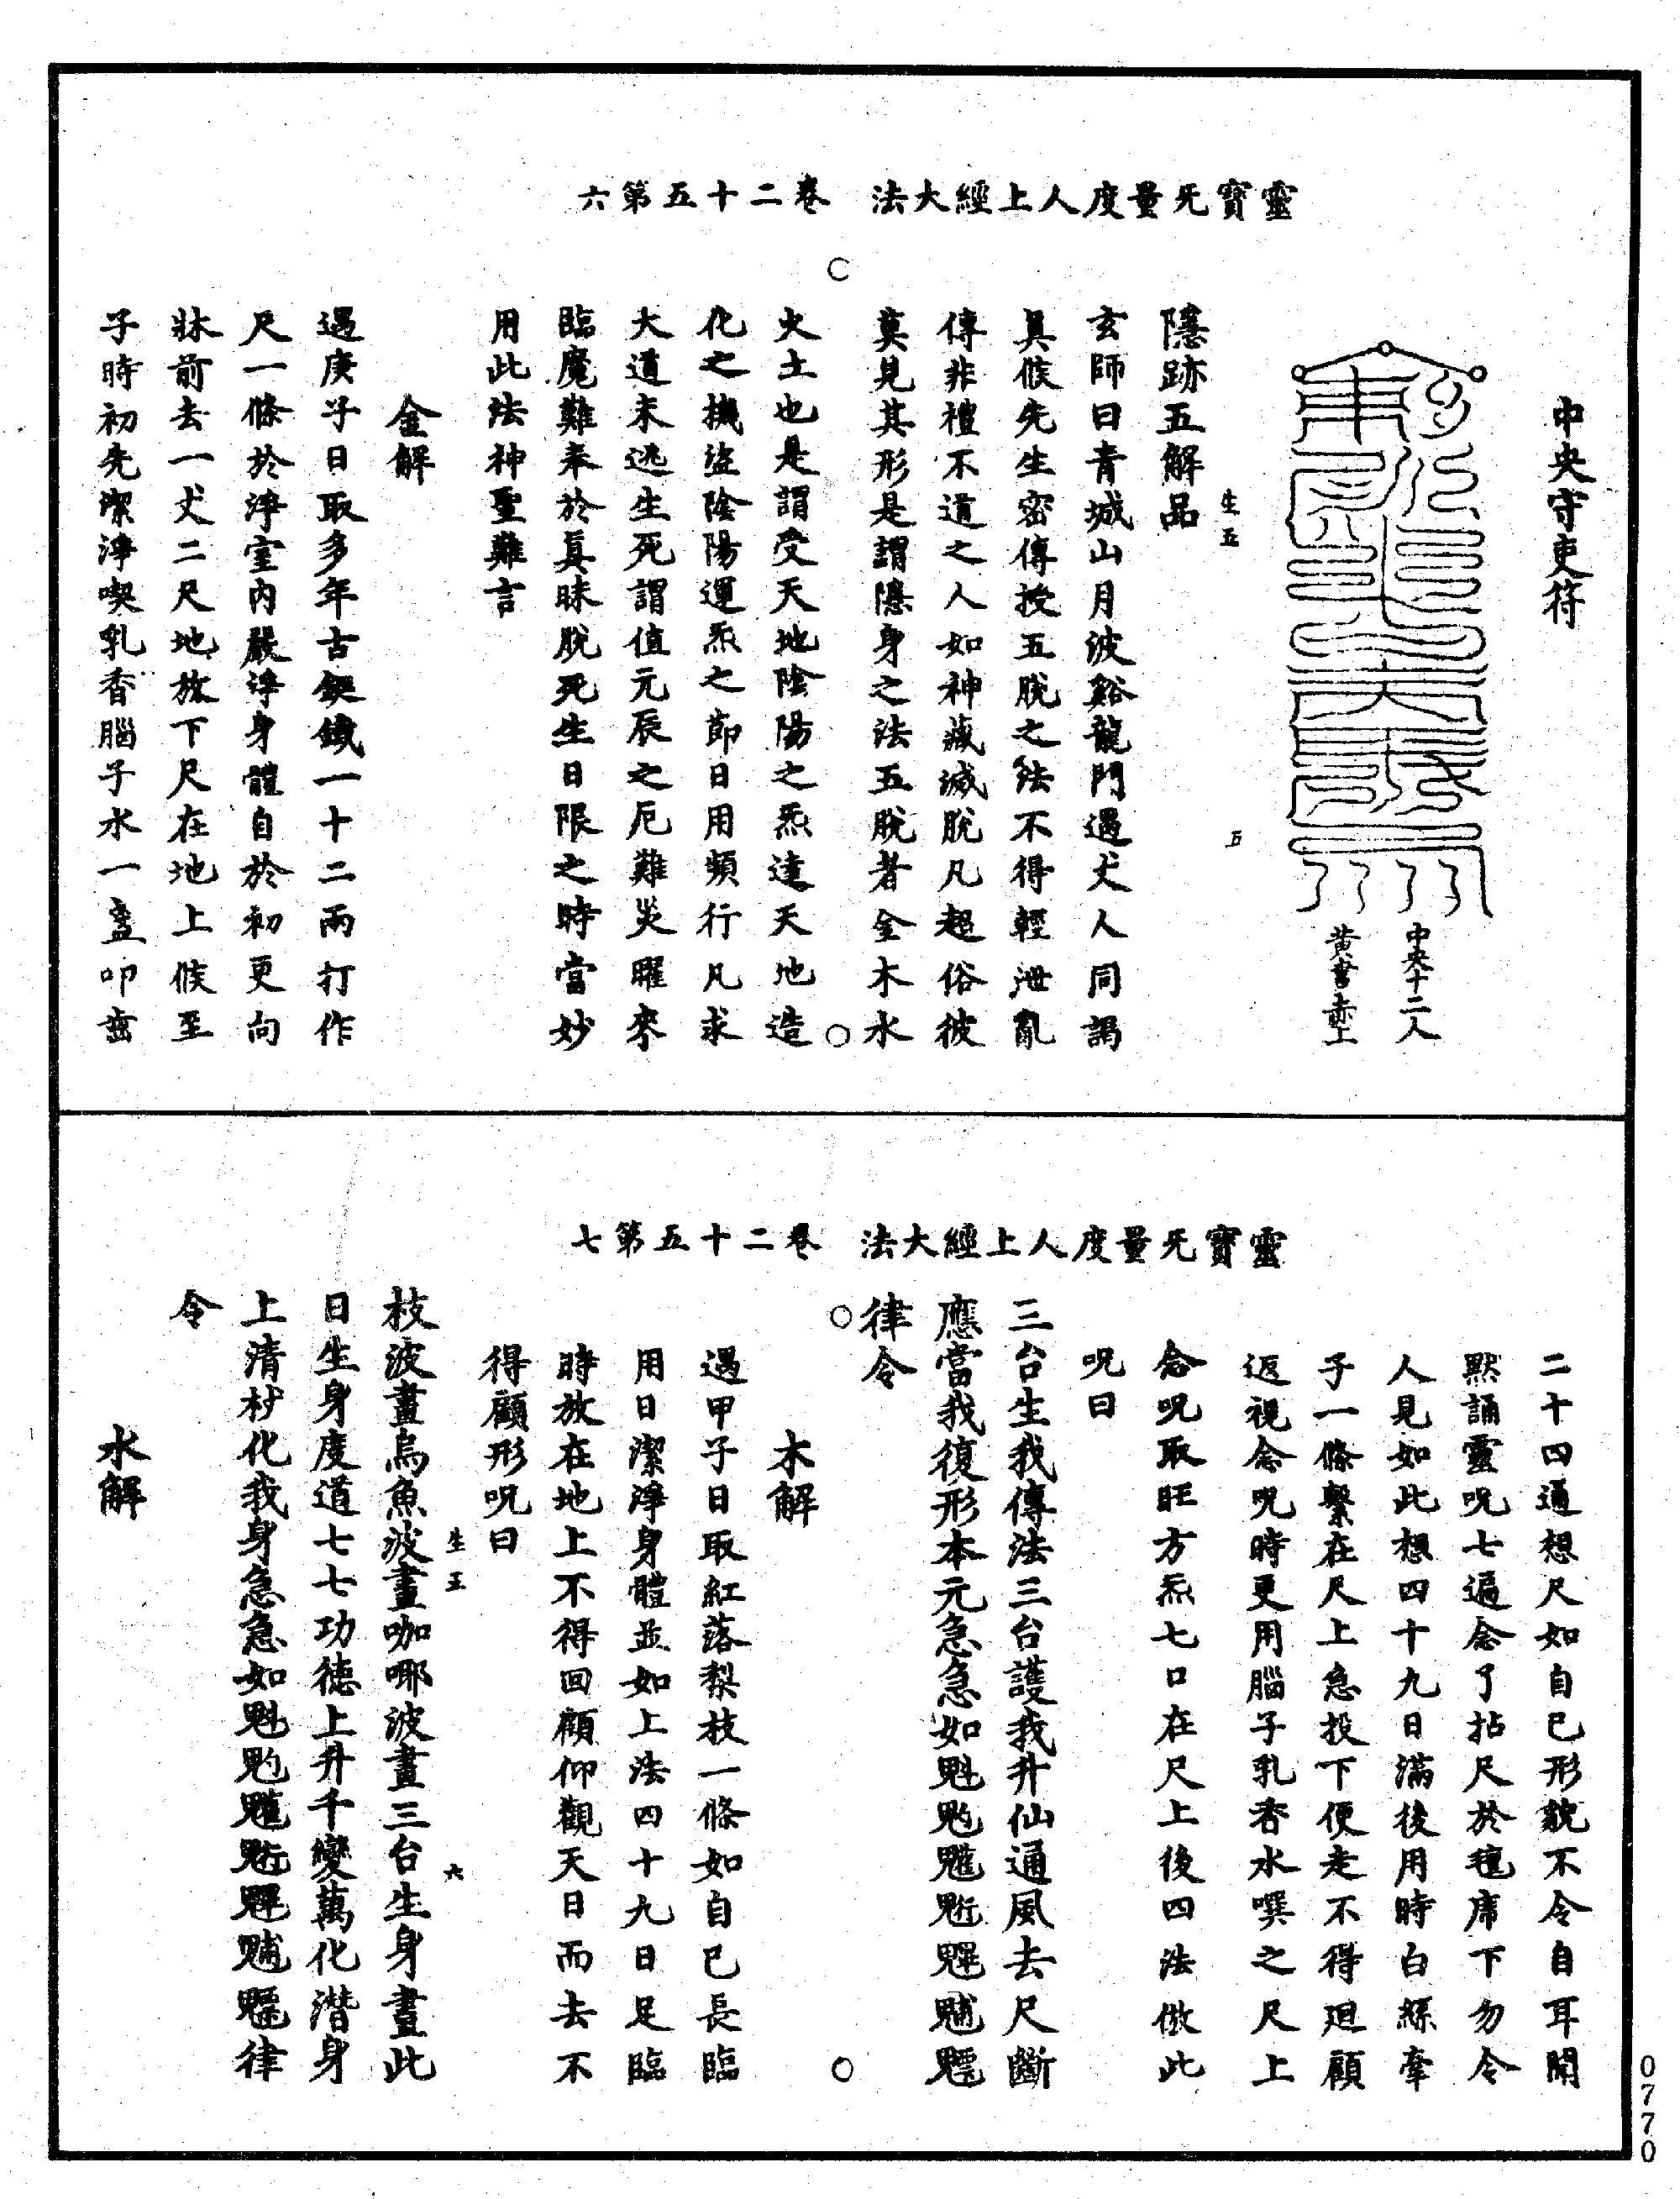 靈寶无量度人上經大法　卷二十五第六
中央守吏符
中央十二人
黃書赤上
生五
五
隱跡五解品
玄師曰青城山月波谿龍門遇丈人同謁
眞候先生密傳授五脫之法不得輕泄亂
傳非禮不道之人如神藏滅脫凡超俗彼
莫見其形是謂隱身之法五脫者金木水
火土也是謂受天地陰陽之炁達天地造
化之機盜陰陽運炁之節日用頻行凡求
大道未逃生死謂值元辰之厄難災曜來
臨魔難奉於眞昧脫死生日限之時當妙
用此法神聖難言
金解
遇庚子日取多年古鍥鐵一十二兩打作
尺一條於淨室內嚴淨身體自於初更向
牀前去一丈二尺地放下尺在地上候至
子時初先潔淨喫乳香腦子水一盞叩齒
靈寶无量度人上經大法　卷二十五第七
二十四通想尺如自己形貌不令自耳聞
黙誦靈呪七遍念了拈尺於氊席下勿令
人見如此想四十九日滿後用時白綵牽
子一條繫在尺上急投下便走不得廻顧
返視念呪時更用腦子乳香水噀之尺上
念呪取旺方炁七口在尺上後四法倣此
呪曰
三台生我傳法三台護我升仙通風去尺斷
應當我復形本元急急如魁𩲃䰢魓魒䰟魒
律令
木解
遇甲子日取紅落梨枝一條如自己長臨
用日潔淨身體並如上法四十九日足臨
時放在地上不得回顧仰觀天日而去不
得顧形呪曰
生王
六
枝波畫烏魚波畫咖哪波畫三台生身畫此
日生身度道七七功德上升千變萬化潛身
上清材化我身急急如魁律
令
水解
0770